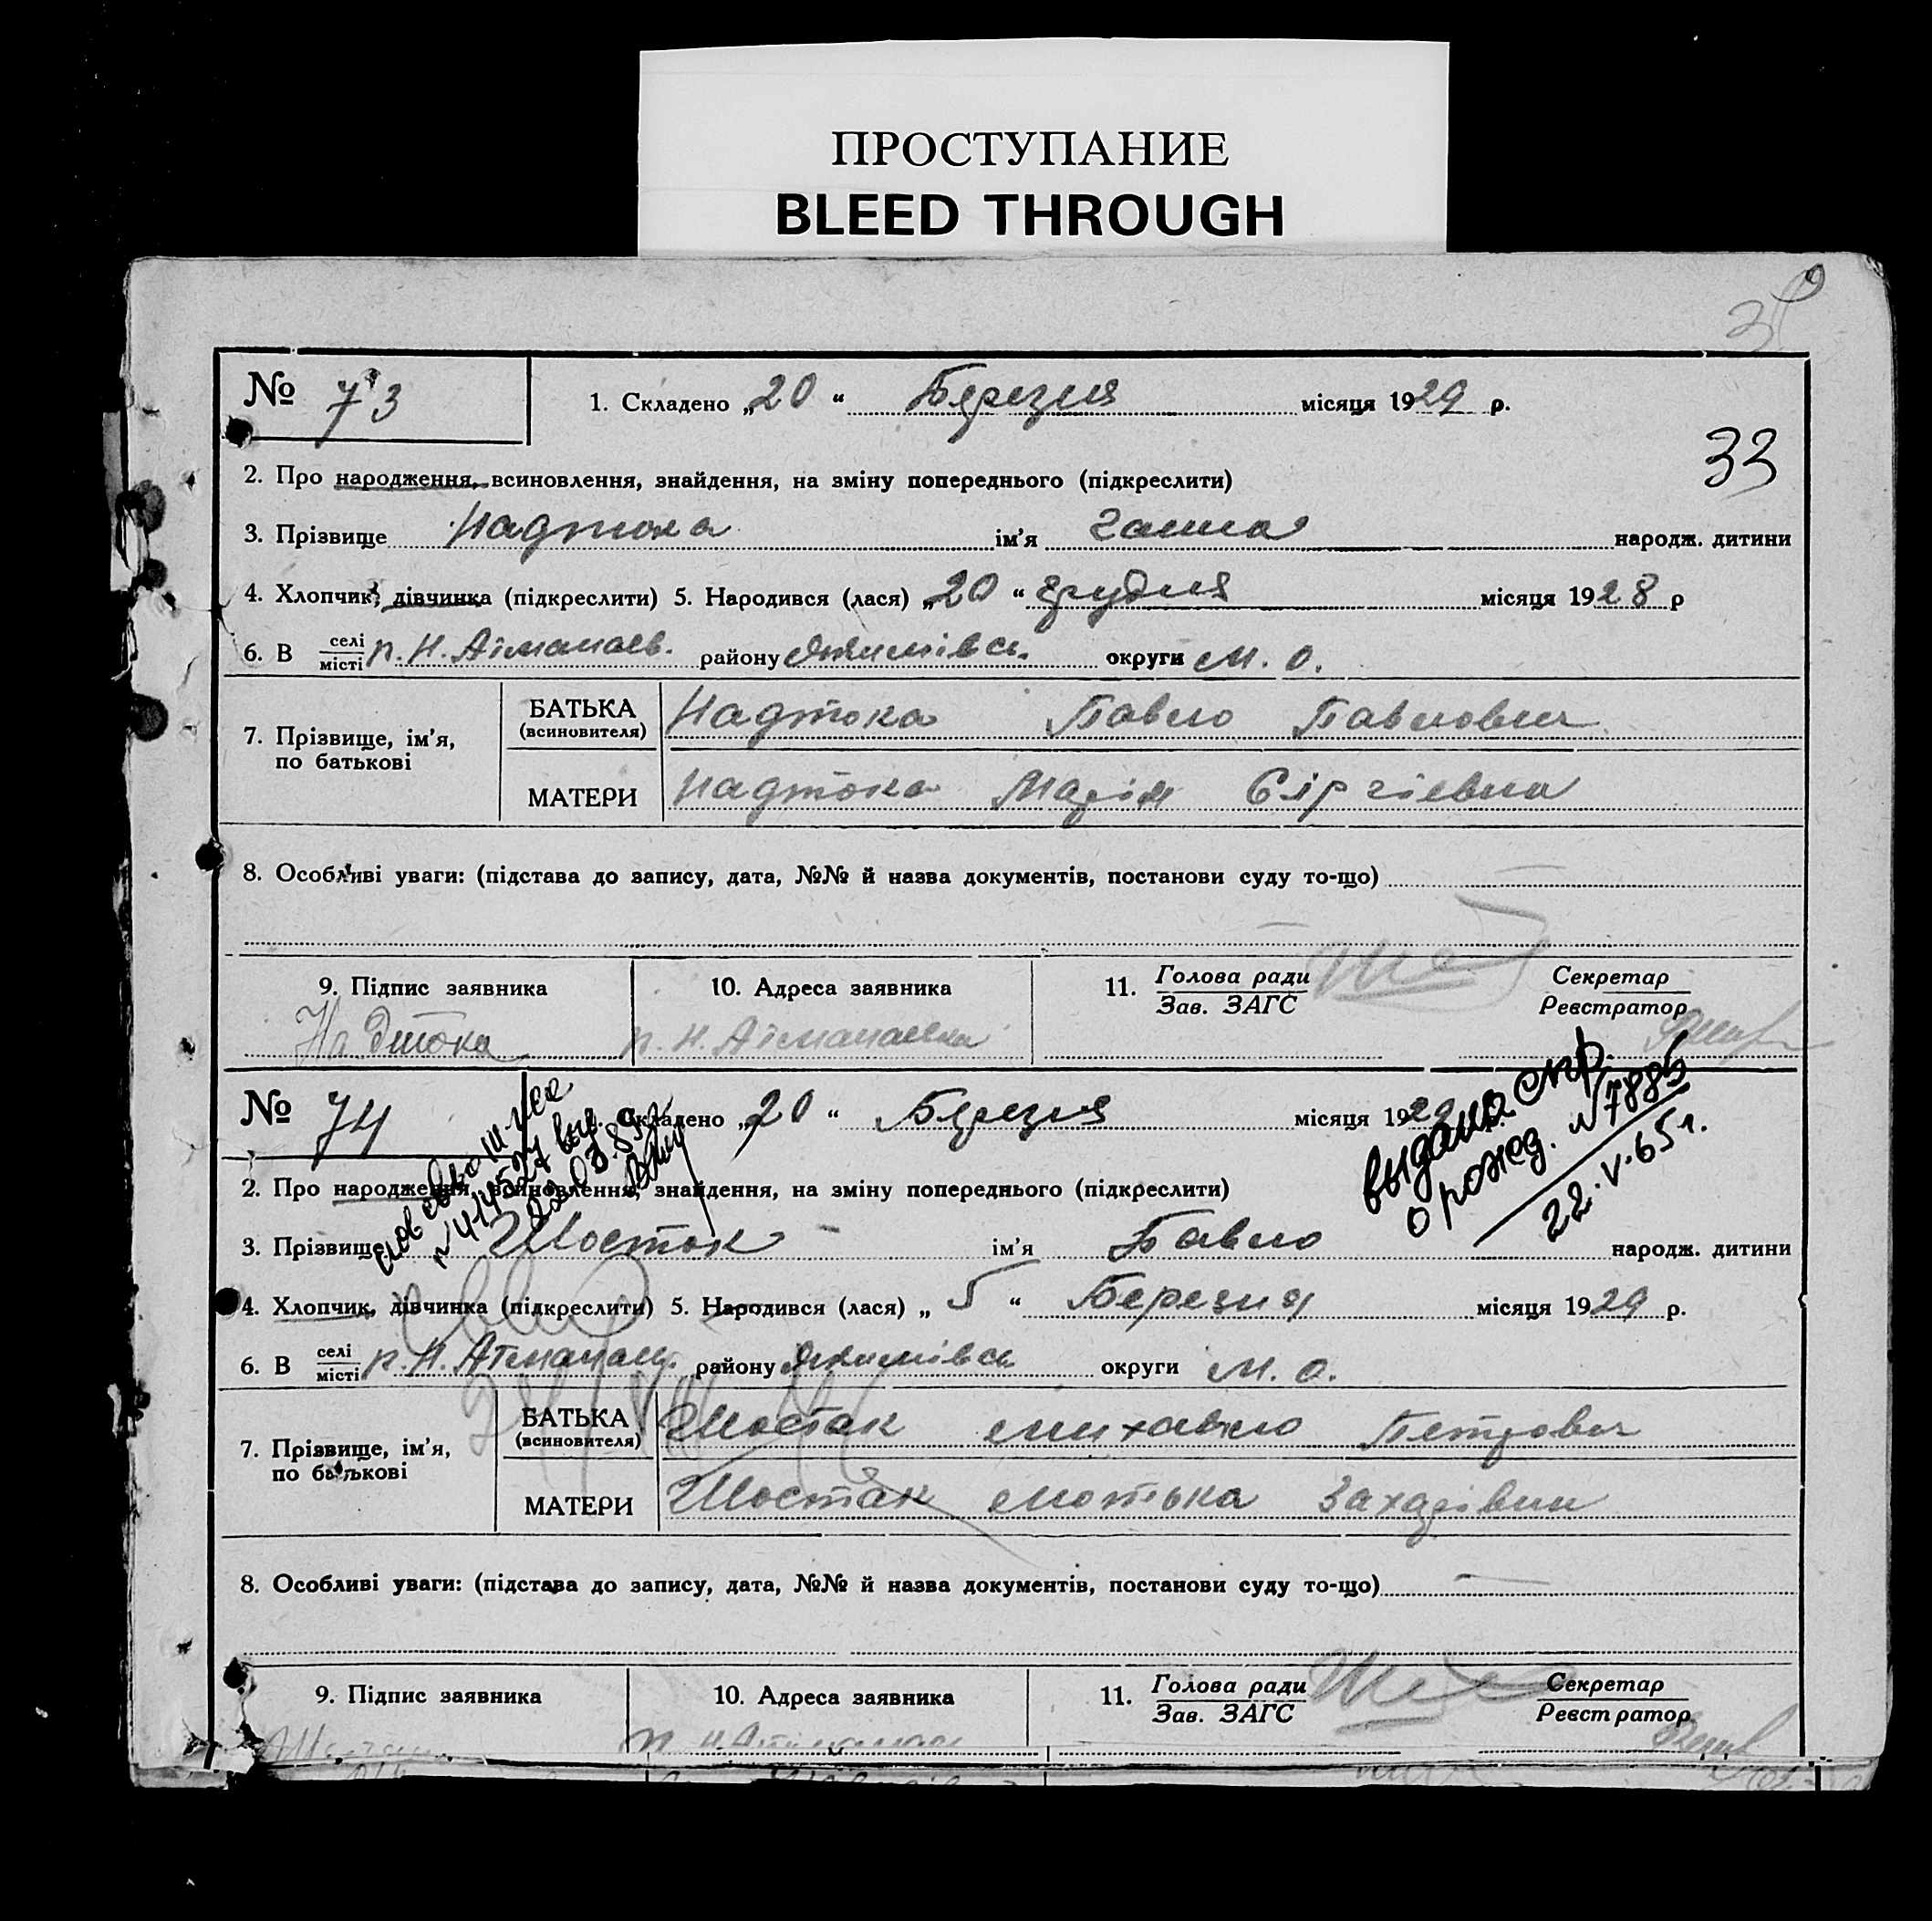 ПРОСТУПАНИЕ
BLEED THROUGH
33
№ 73 1. Складено „20“ Березня місяця 1929 р.
2. Про народження, всиновлення, знайдення, на зміну попереднього (підкреслити)
3. Прізвище Надтока ім'я Ганна народж. дитини
4. Хлопчик, дівчинка (підкреслити) 5. Народився (лася) „20“ грудня місяця 1928 р
6. В селі місті п. Н. Атманаев. району Якимівськ. округи М. О.
7. Прізвище, ім'я, по батькові
БАТЬКА (всиновителя) Надтока Павло Павлович
МАТЕРИ Надтока Марія Сіргіевна
8. Особливі уваги: (підстава до запису, дата, №№ й назва документів, постанови суду то-що)
9. Підпис заявника 10. Адреса заявника 11. Голова ради Зав. ЗАГС Секретар Реєстратор
Надтока п. Н. Атманаевка
№ 74 Складено „20“ Березня місяця 1929
выдана спр.
о рожд. N 7885
22.V.65 г.
2. Про народження, всиновлення, знайдення, на зміну попереднього (підкреслити)
3. Прізвище Шостак ім'я Павло народж. дитини
4. Хлопчик, дівчинка (підкреслити) 5. Народився (лася) „5“ Березня місяця 1929 р.
6. В селі місті п. Н. Атманаев. району Якимівськ округи М. О.
7. Прізвище, ім'я, по батькові
БАТЬКА (всиновителя) Шостак Михайло Петрович
МАТЕРИ Шостак Мотька Захарівни
8. Особливі уваги: (підстава до запису, дата, №№ й назва документів, постанови суду то-що)
9. Підпис заявника 10. Адреса заявника 11. Голова ради Зав. ЗАГС Секретар Реєстратор